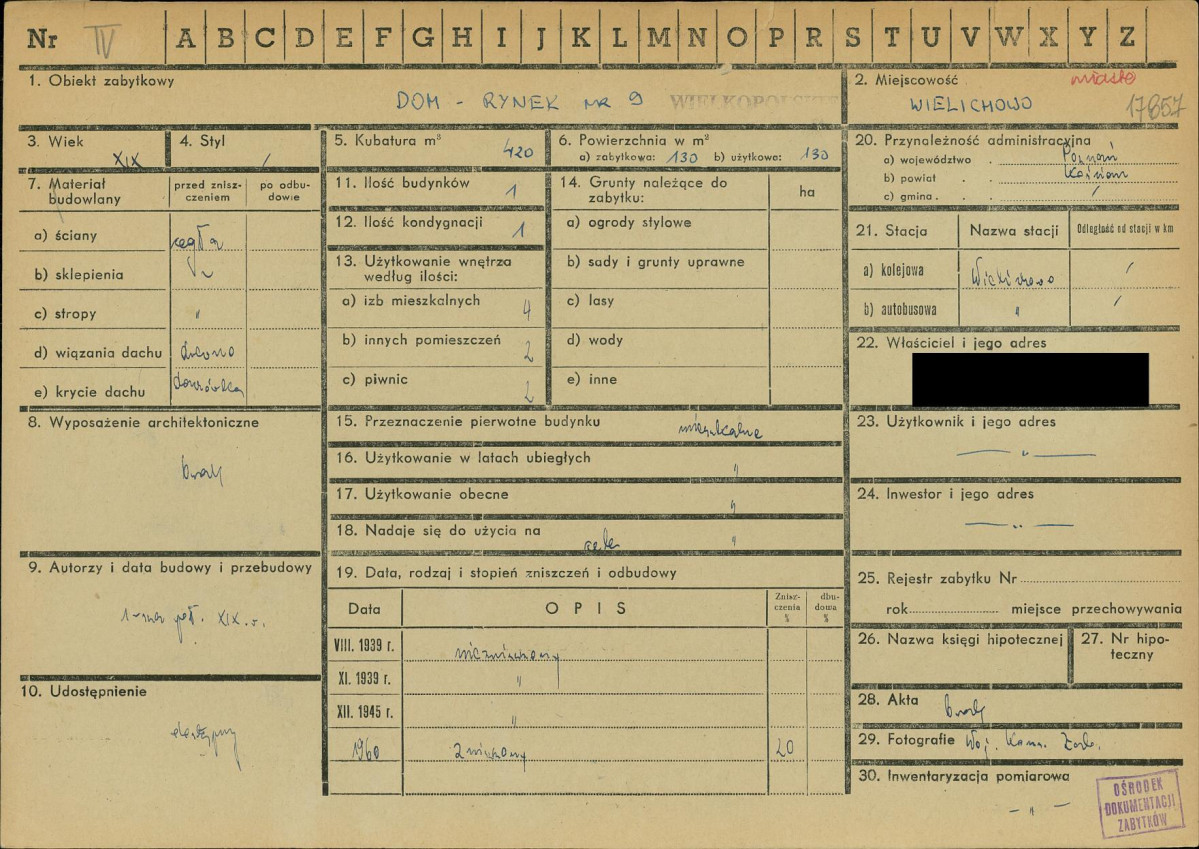 Nr IV A B C D E F G H I J K L M N O P R S T U V W X Y Z
1. Obiekt zabytkowy
DOM - RYNEK NR 9 WIELKOPOLSKIE
2. Miejscowość miasto
WIELICHOWO 17857
3. Wiek
XIX
4. Styl
/
5. Kubatura m³ 420
6. Powierzchnia w m²
a) zabytkowa: 130 b) użytkowa: 130
20. Przynależność administracyjna
a) województwo . Poznań
b) powiat . . Kościan
c) gmina . . . /
7. Materiał budowlany
przed zniszczeniem
po odbudowie
a) ściany cegła
b) sklepienia
c) stropy "
d) wiązania dachu drewno
e) krycie dachu dachówka
11. Ilość budynków 1
12. Ilość kondygnacji 1
13. Użytkowanie wnętrza
według ilości:
a) izb mieszkalnych 4
b) innych pomieszczeń 2
c) piwnic 2
14. Grunty należące do
zabytku:
ha
a) ogrody stylowe
b) sady i grunty uprawne
c) lasy
d) wody
e) inne
21. Stacja Nazwa stacji Odległość od stacji w km
a) kolejowa Wielichowo /
b) autobusowa " /
22. Właściciel i jego adres
8. Wyposażenie architektoniczne
brak
15. Przeznaczenie pierwotne budynku mieszkalne
16. Użytkowanie w latach ubiegłych "
17. Użytkowanie obecne "
18. Nadaje się do użycia na cele "
23. Użytkownik i jego adres
— " —
24. Inwestor i jego adres
— " —
9. Autorzy i data budowy i przebudowy
1-sza poł. XIX w.
10. Udostępnienie
dostępny
19. Data, rodzaj i stopień zniszczeń i odbudowy
Data OPIS Zniszczenia % dbudowa %
VIII. 1939 r. niezniszczony
XI. 1939 r. "
XII. 1945 r. "
1960 zniszczony 20
25. Rejestr zabytku Nr
rok miejsce przechowywania
26. Nazwa księgi hipotecznej
27. Nr hipoteczny
28. Akta brak
29. Fotografie Woj. Kons. Zab.
30. Inwentaryzacja pomiarowa
— " —
OŚRODEK
DOKUMENTACJI
ZABYTKÓW